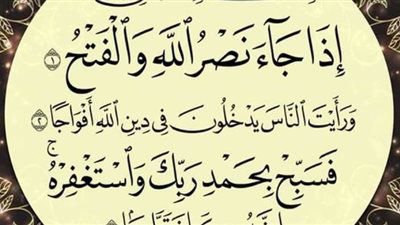 إِذَا جَآءَ نَصْرُ ٱللَّهِ وَٱلْفَتْحُ ١
وَرَأَيْتَ ٱلنَّاسَ يَدْخُلُونَ فِي دِينِ ٱللَّهِ أَفْوَاجًا ٢
فَسَبِّحْ بِحَمْدِ رَبِّكَ وَٱسْتَغْفِرْهُ ۚ